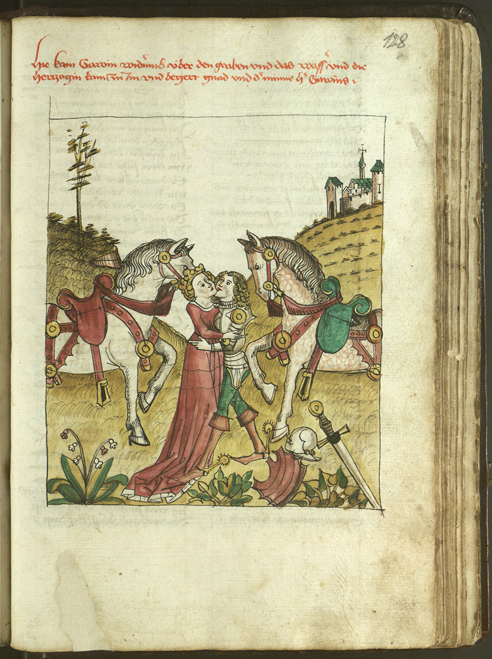 128
Hie kam Gawin widerumb v̈ber den graben vnd das waſſ͛ vnd die
hertzogin kam zu Im vnd begert gnad vnd d͛ minne h͛ Gawins